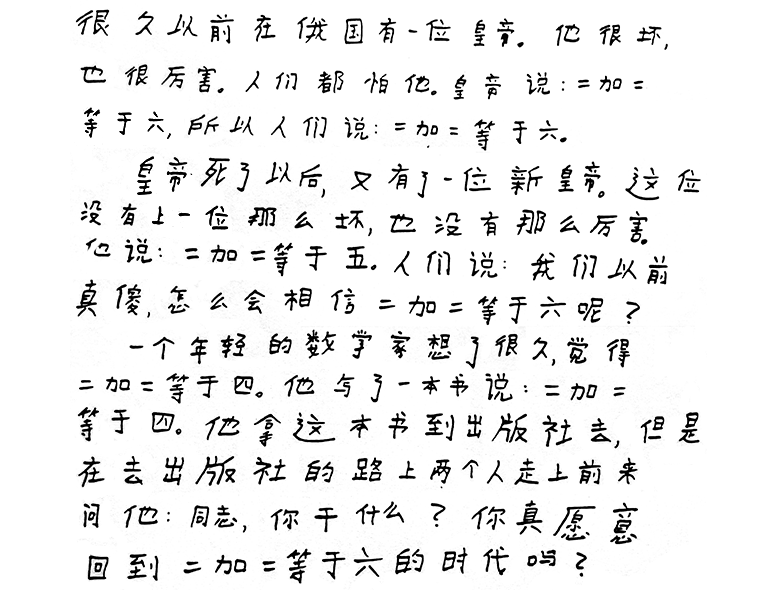 很久以前在俄国有一位皇帝。他很坏，
也很厉害。人们都怕他。皇帝说：二加二
等于六，所以人们说：二加二等于六。
皇帝死了以后，又有了一位新皇帝。这位
没有上一位那么坏，也没有那么厉害。
他说：二加二等于五。人们说：我们以前
真傻，怎么会相信二加二等于六呢？
一个年轻的数学家想了很久，觉得
二加二等于四。他写了一本书说：二加二
等于四。他拿这本书到出版社去，但是
在去出版社的路上两个人走上前来
问他：同志，你干什么？你真愿意
回到二加二等于六的时代吗？